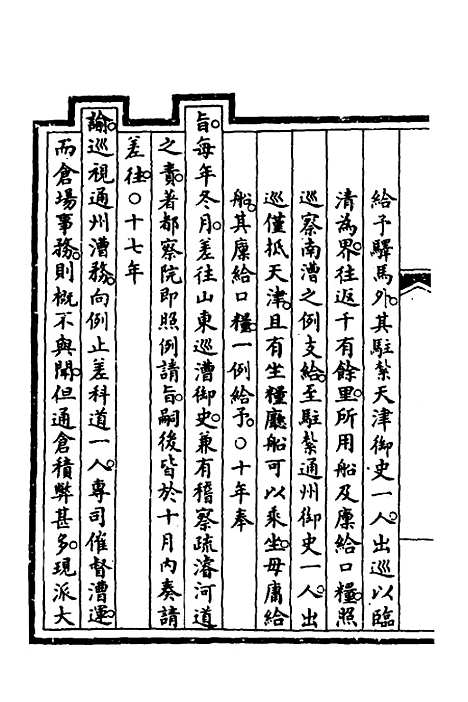 給予驛馬外。其駐紮天津御史一人。出巡以臨
清為界。往返千有餘里。所用船及廩給口糧。照
巡察南漕之例支給。至駐紮通州御史一人。出
巡僅抵天津。且有坐糧廳船可以乘坐。毋庸給
船。其廩給口糧。一例給予。○十年奉
旨。每年冬月。差往山東巡漕御史。兼有稽察疏濬河道
之責。著都察院即照例請旨。嗣後皆於十月內奏請
差往。○十七年
諭。巡視通州漕務。向例止差科道一人。專司催督漕運。
而倉場事務。則概不與聞。但通倉積弊甚多。現派大